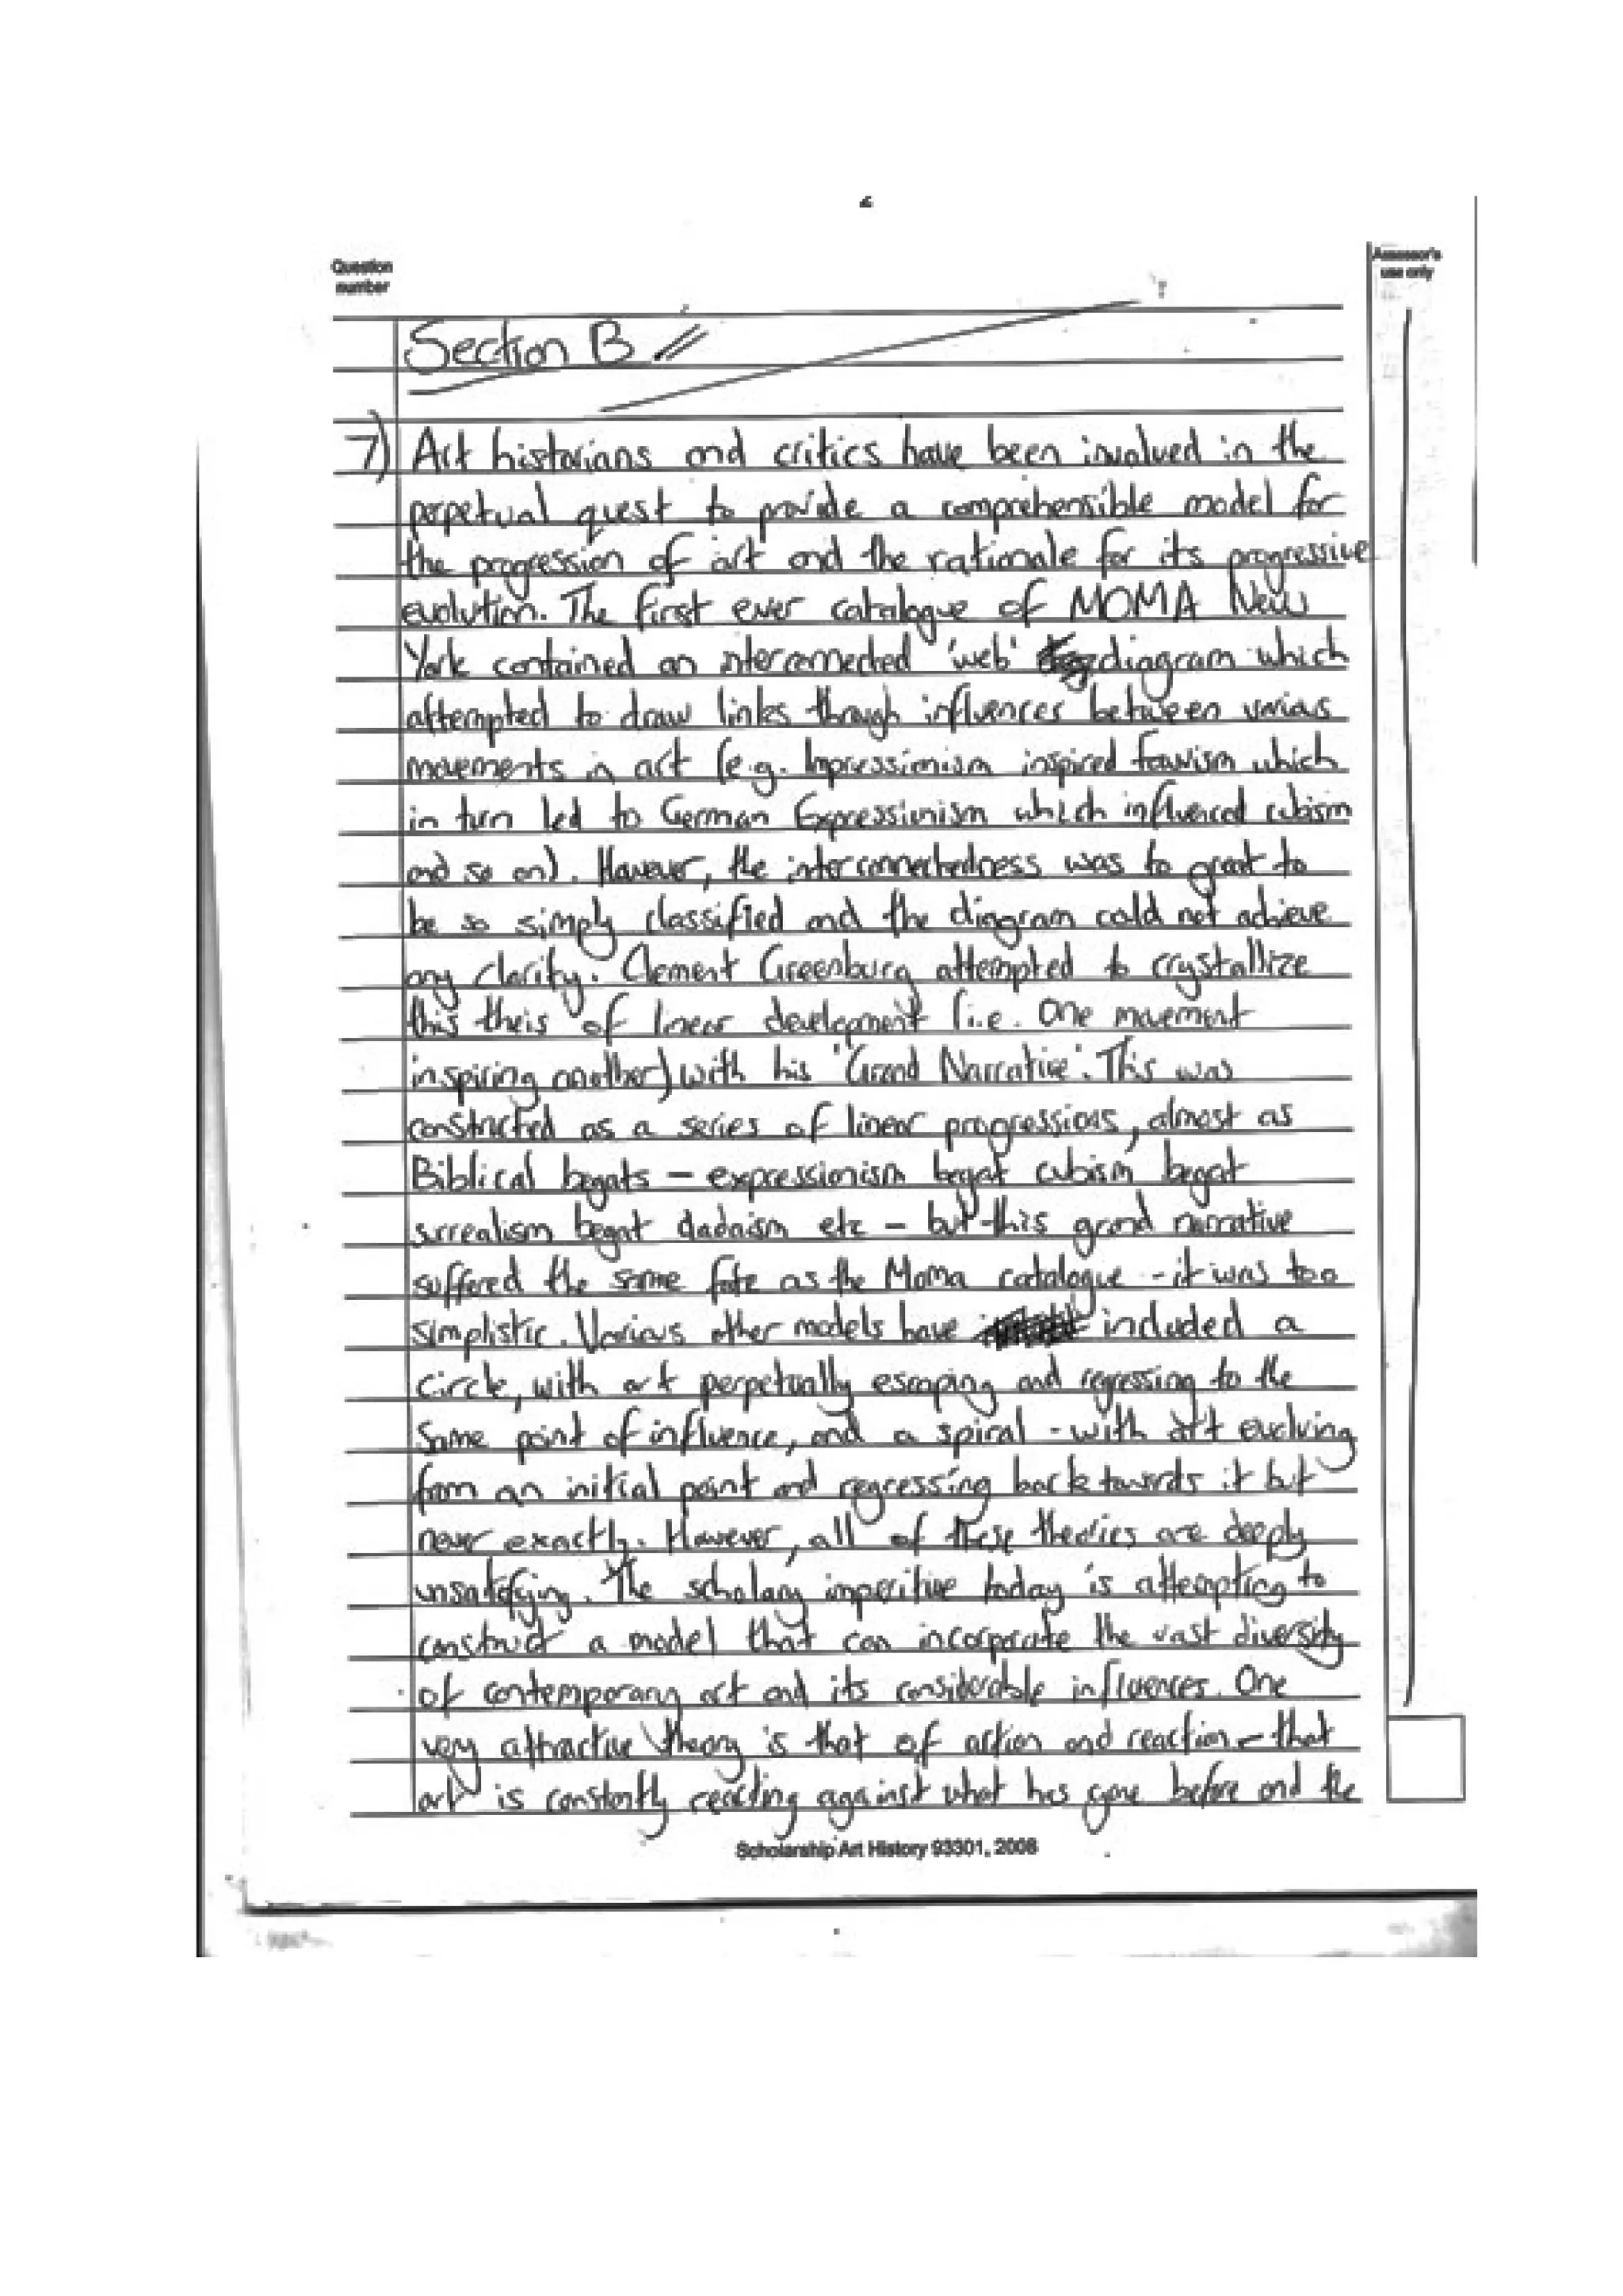 Question
number
Assessor's
use only
Section B
7) Art historians and critics have been involved in the
perpetual quest to provide a comprehensible model for
the progression of art and the rationale for its progressive
evolution. The first ever catalogue of MOMA New
York contained an interconnected 'web' diagram which
attempted to draw links through influences between various
movements in art (e.g. Impressionism inspired fauvism which
in turn led to German Expressionism which influenced cubism
and so on). However, the interconnectedness was to great to
be so simply classified and the diagram could not achieve
any clarity. Clement Greenburg attempted to crystallize
this theis of linear development (i.e. One movement
inspiring another) with his 'Grand Narrative'. This was
constructed as a series of linear progressions, almost as
Biblical begats - expressionism begat cubism begat
surrealism begat dadaism etc - but this grand narrative
suffered the same fate as the Moma catalogue - it was too
simplistic. Various other models have included a
circle, with art perpetually escaping and regressing to the
same point of influence, and a spiral - with art evolving
from an initial point and regressing back towards it but
never exactly. However, all of these theories are deeply
unsatisfying. The scholary imperitive today is attempting to
construct a model that can incorporate the vast diversity
of contemporary art and its considerable influences. One
very attractive theory is that of action and reaction - that
art is constantly reacting against what has gone before and the
Scholarship Art History 93301, 2008